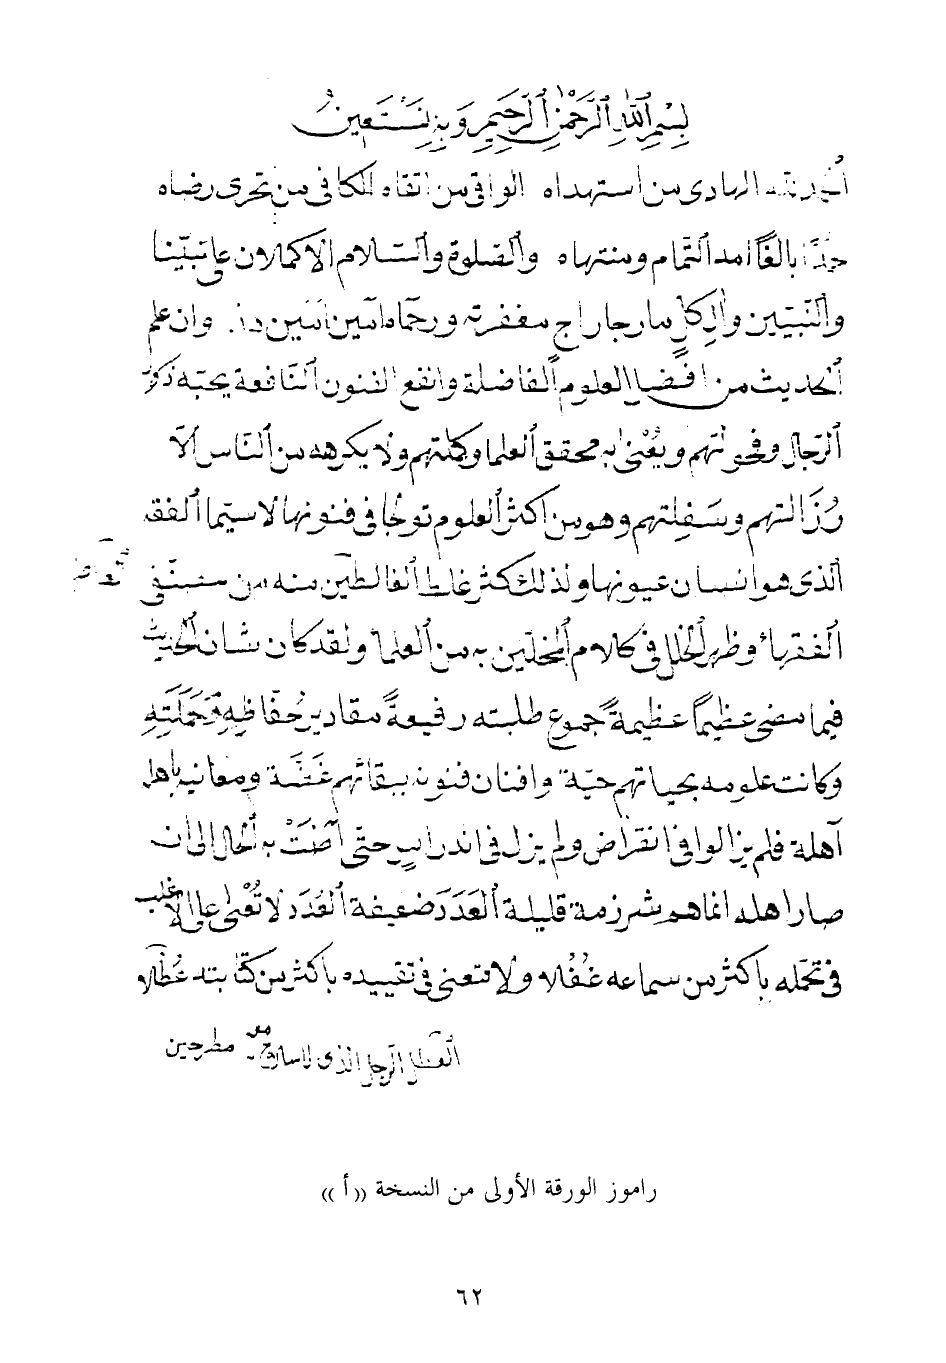 بِسْمِ اللهِ الرَّحْمٰنِ الرَّحِيمِ وَبِهِ نَسْتَعِينُ
الحمد لله الهادى من استهداه الواقى من اتقاه الكافى من تحرى رضاه
حمدًا بالغًا امد التَّمام ومنتهاه والصَّلوة والسَّلام الاكملان على نبيّنا
والنَّبيّين وآل كلٍّ ما رجا راجٍ مغفرته ورحماه امين امين وان علم
الحديث من افضل العلوم الفاضلة وانفع الفنون النَّافعة يحبّه ذكور
الرّجال وفحولتهم ويُعْنٰى به محققو العلما وكملتهم ولا يكرهه من النَّاس الّا
رُذَالتهم وسَفِلتهم وهو من اكثر العلوم تولجًا فى فنونها لا سيّما الفقه
الّذى هو انسان عيونها ولذلك كثر غلط الغالطين منه من مصنّفى
الفقهاء وظهر الخلل فى كلام المخلّين به من العلماء ولقد كان شان الحديث
فيما مضى عظيمًا عظيمةً جموع طلبته رفيعةً مقادير حُفّاظِهِ وَحَمَلَتِهِ
وكانت علومه بحياتهم حيّة وافنان فنونه ببقائهم غَضَّة ومغانيه باهله
آهلة فلم يزالوا فى انقراض ولم يزل فى اندراسٍ حتّى آضَتْ به الحال الى ان
صار اهله انما هم شرذمة قليلة العَدَد ضعيفة العُدَد لا تُعْنٰى على الاغلب
فى تحمّله باكثر من سماعه غُفْلا ولا تتعنى فى تقييده باكثر من كتابته عُطْلا
العطل الرجل الذى لا سلاح معه
راموز الورقة الأولى من النسخة «أ»
٦٢